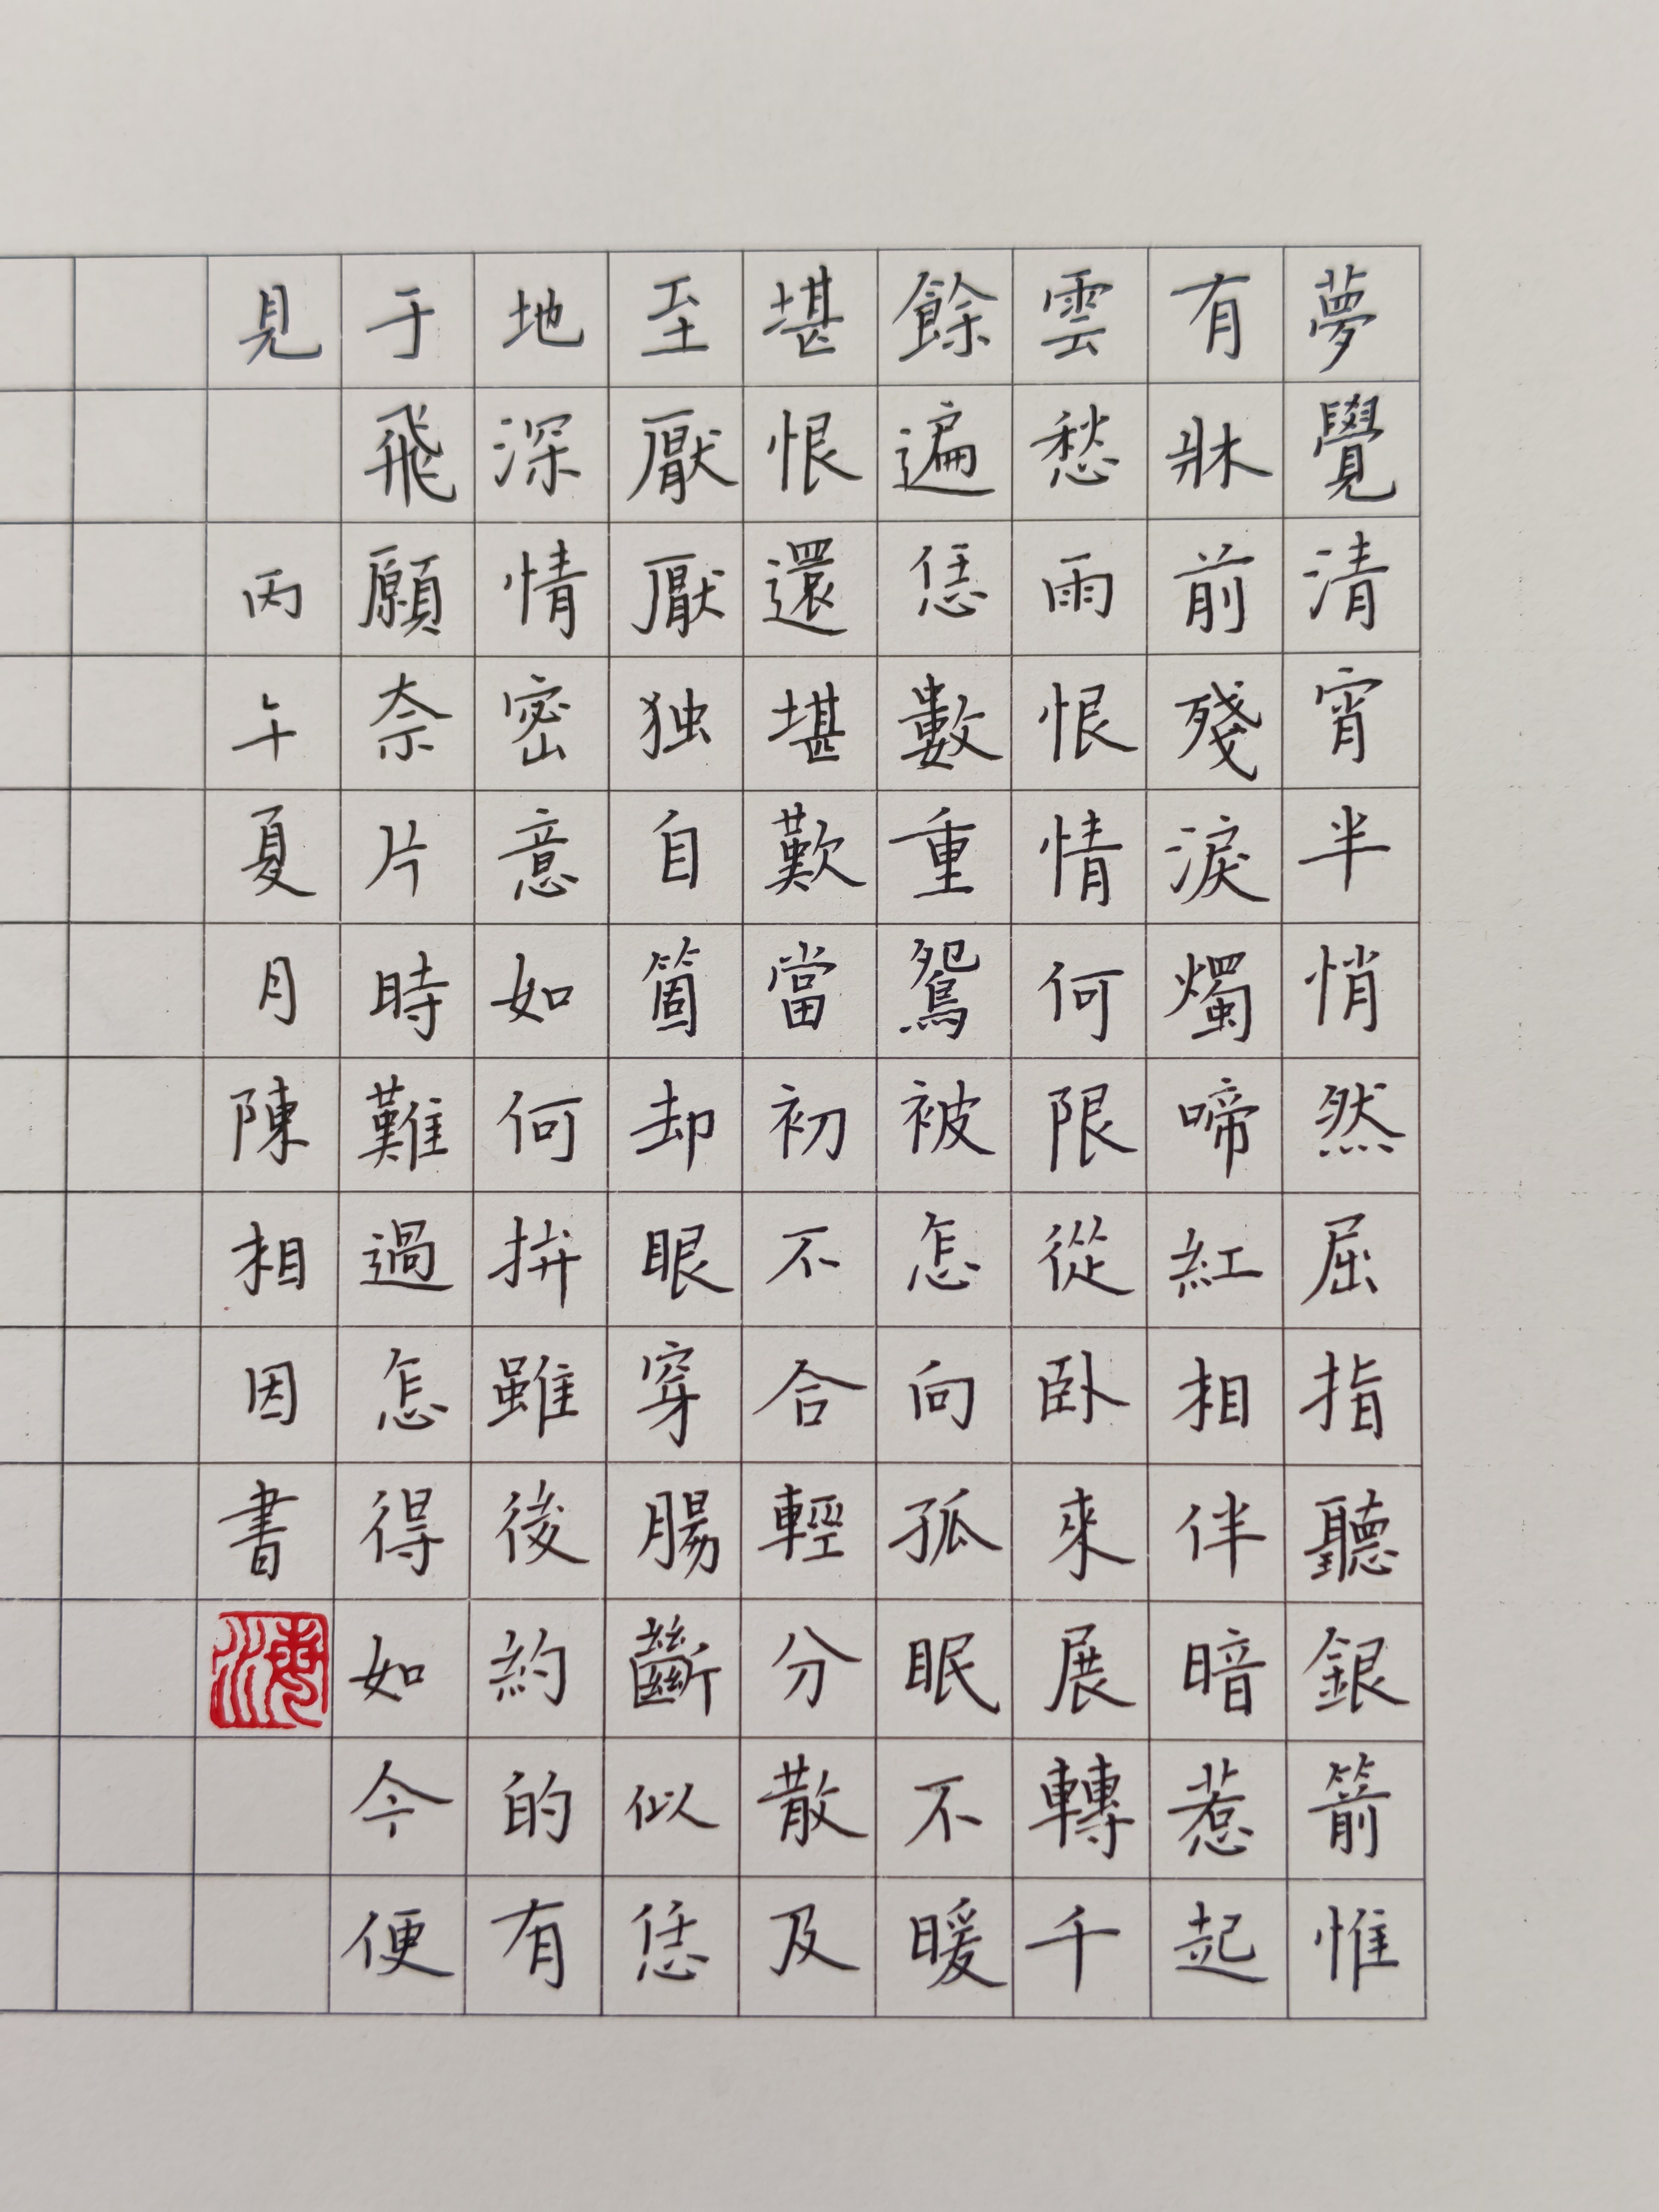 夢覺清宵半悄然屈指聽銀箭惟
有牀前殘淚燭啼紅相伴暗惹起
雲愁雨恨情何限從卧來展轉千
餘遍恁數重鴛被怎向孤眠不暖
堪恨還堪歎當初不合輕分散及
至厭厭独自箇却眼穿腸斷似恁
地深情密意如何拚雖後約的有
于飛願奈片時難過怎得如今便
見
丙午夏月陳相因書
海